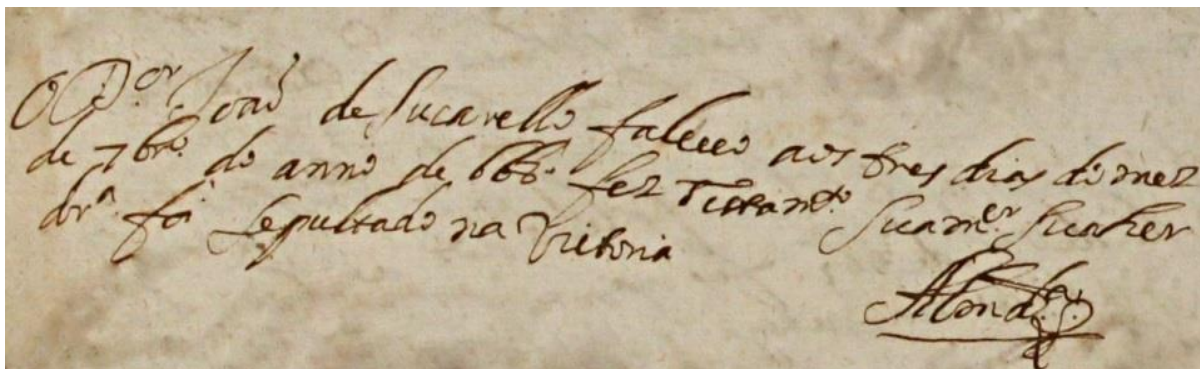 O D.or Joaõ de Sucarello faleceo aos tres dias do mez
de 7bro. do anno de 668. fez Testam.to Sua m.er Sua her
dr.a foi sepultado na Victoria